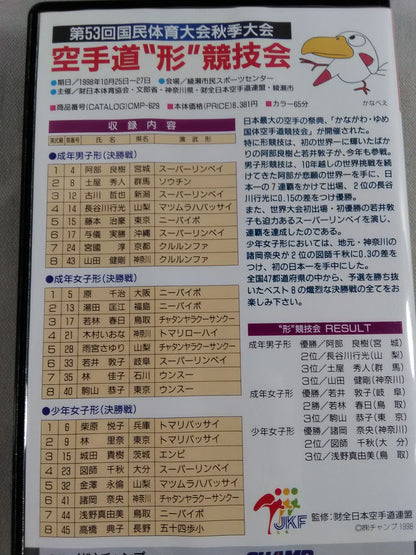 第53回国民体育大会秋季大会
空手道“形”競技会
●期日/1998年10月25日～27日 ●会場/綾瀬市民スポーツセンター
●主催/財日本体育協会・文部省・神奈川県・財全日本空手道連盟・綾瀬市
●商品番号(CATALOG)CMP-629 ●本体価格(PRICE)8,381円 ●カラー65分
かなべえ
収録内容
演武順 背番号 氏名 演武形
●成年男子形(決勝戦)
1 4 阿部 良樹 宮城 スーパーリンペイ
2 8 土屋 秀人 群馬 ソウチン
3 12 古川 哲也 新潟 スーパーリンペイ
4 14 長谷川行光 山梨 マツムラハパッサイ
5 15 藤本 治慶 東京 ニーパイポ
6 17 与儀 実勝 沖縄 スーパーリンペイ
7 24 宮國 淳 京都 クルルンファ
8 43 山田 健剛 神奈川 クルルンファ
●成年女子形(決勝戦)
1 5 原 千治 大阪 ニーパイポ
2 13 湯田 匡江 福島 ニーパイポ
3 17 若林 春日 鳥取 チャタンヤラクーサンクー
4 21 木村いおな 神奈川 トマリローハイ
5 28 雨宮さゆり 山梨 チャタンヤラクーサンクー
6 33 若井 敦子 岐阜 スーパーリンペイ
7 35 林 佳子 石川 ウンスー
8 40 駒山 恭子 東京 ウンスー
●少年女子形(決勝戦)
1 6 柴原 悦子 兵庫 トマリバッサイ
2 9 林 里奈 東京 トマリバッサイ
3 15 城田 貴樹 茨城 エンピ
4 23 図師 千秋 大分 スーパーリンペイ
5 32 金澤 永倫 山梨 マツムラハパッサイ
6 41 諸岡 奈央 神奈川 チャタンヤラクーサンクー
7 44 浅野真由美 鳥取 ニーパイポ
8 45 高橋 典子 長野 五十四歩小
日本最大の空手の祭典、「かながわ・ゆめ
国体空手道競技会」が開催された。
特に形競技は、初の世界一に輝いたばか
りの阿部良樹と若井敦子が、今年も参戦。
男子形競技は、10年越しの世界挑戦を続
けてきた阿部が悲願の世界一を手に、日
本一の7連覇をかけて出場、2位の長谷
川行光に0.15の差をつけ優勝。
また、世界大会初出場・初優勝の若井敦
子も迫力あるスーパーリンペイを演じ、
連覇を達成したのである。
少年女子形においては、地元・神奈川の
諸岡奈央が2位の図師千秋に0.3の差を
つけ、初の日本一を手中にした。
全国47都道府県の中から、予選を勝ち抜
いたベスト8の熾烈な決勝の全てをお
楽しみ下さい。
“形”競技会 RESULT
成年男子形 優勝/阿部 良樹(宮 城)
2位/長谷川行光(山 梨)
3位/土屋 秀人(群 馬)
3位/山田 健剛(神奈川)
成年女子形 優勝/若井 敦子(岐 阜)
2勝/若林 春日(鳥 取)
3位/駒山 恭子(東 京)
少年女子形 優勝/諸岡 奈央(神奈川)
2位/図師 千秋(大 分)
3位/浅野真由美(鳥 取)
JKF
監修:財全日本空手道連盟
©㈱チャンプ 1998